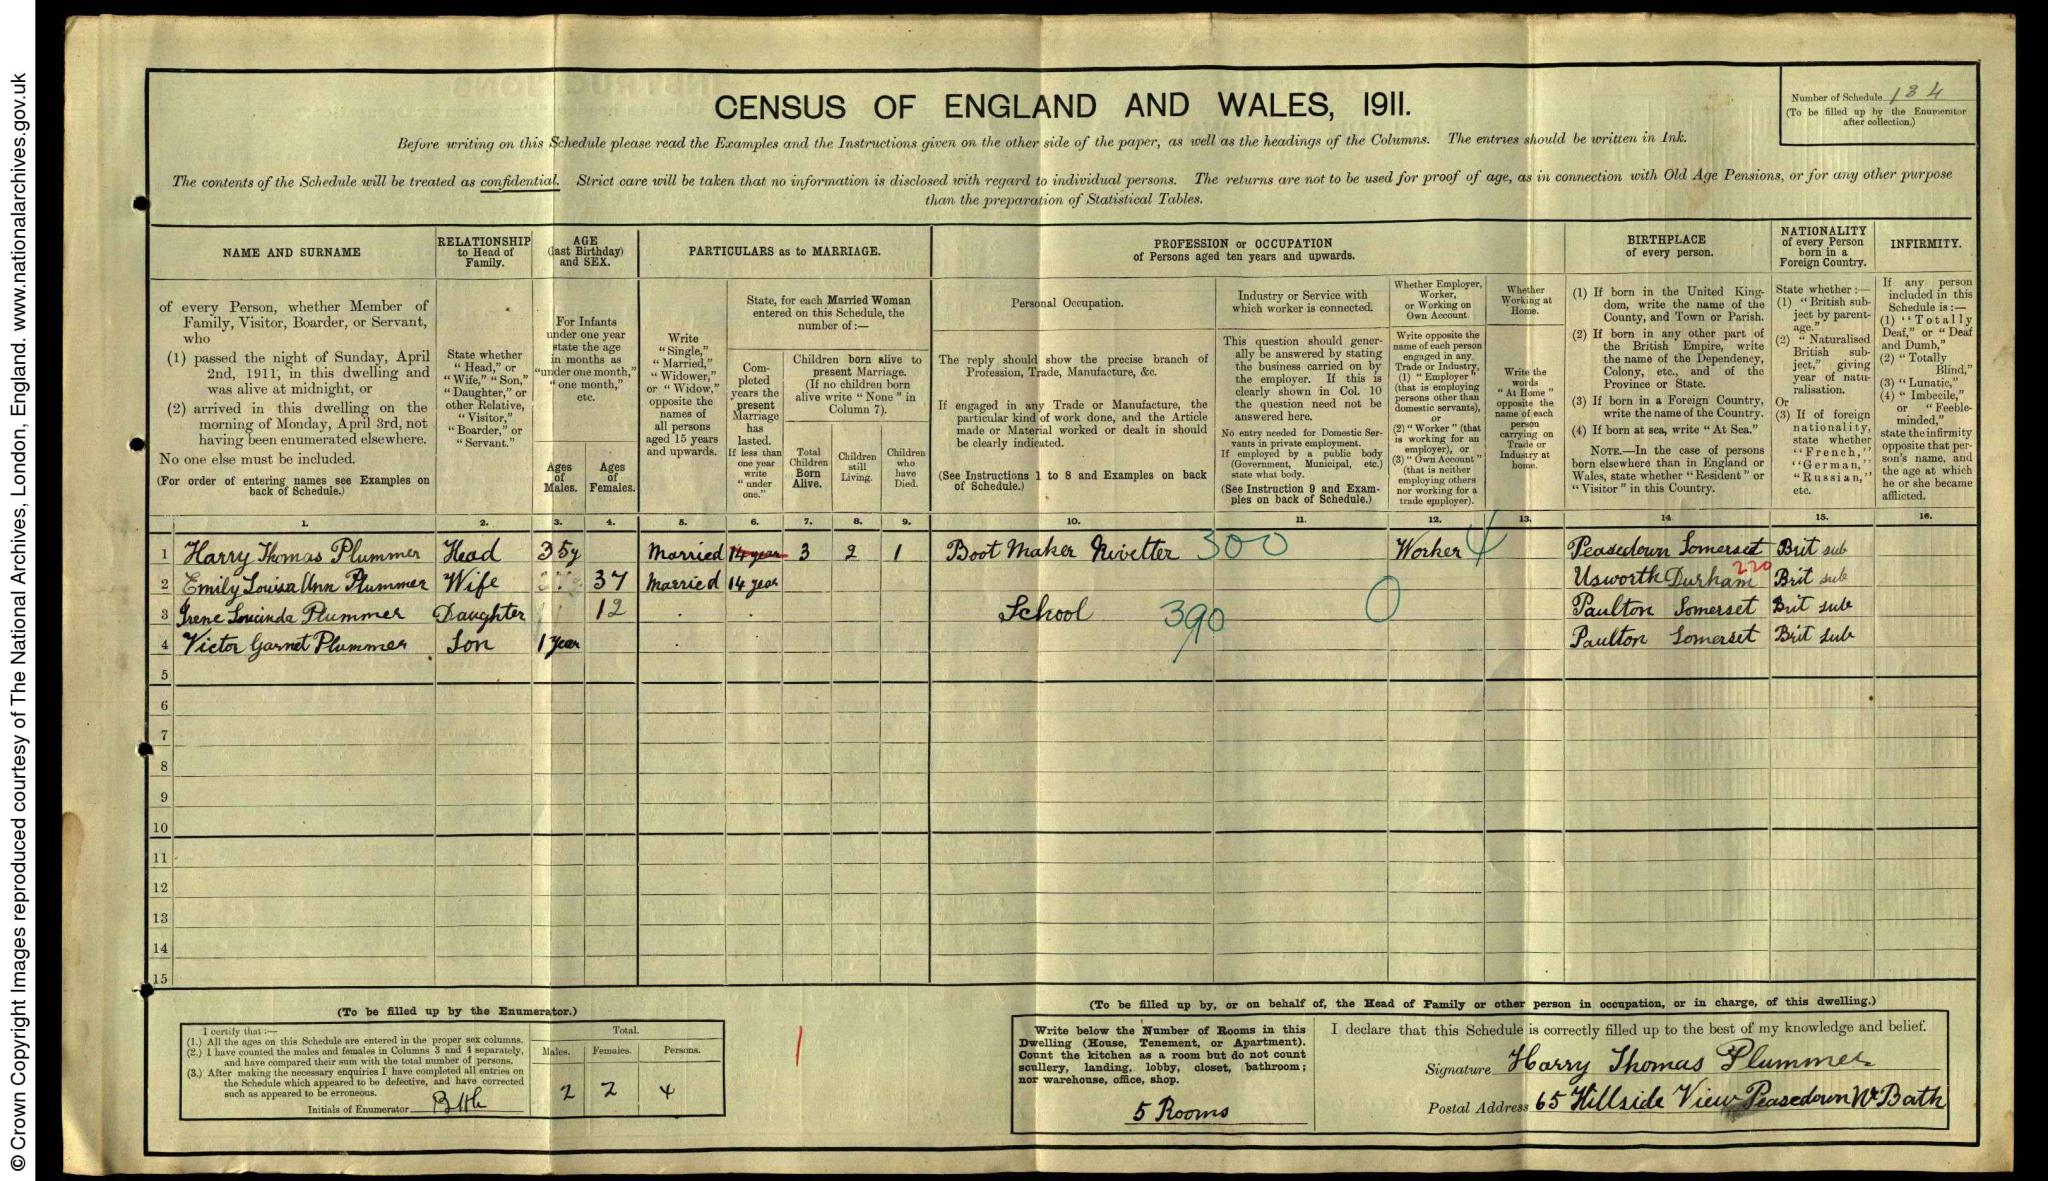 © Crown Copyright Images reproduced courtesy of The National Archives, London, England. www.nationalarchives.gov.uk
CENSUS OF ENGLAND AND WALES, 1911.
Number of Schedule 134
(To be filled up by the Enumerator
after collection.)
Before writing on this Schedule please read the Examples and the Instructions given on the other side of the paper, as well as the headings of the Columns. The entries should be written in Ink.
The contents of the Schedule will be treated as confidential. Strict care will be taken that no information is disclosed with regard to individual persons. The returns are not to be used for proof of age, as in connection with Old Age Pensions, or for any other purpose
than the preparation of Statistical Tables.
NAME AND SURNAME
of every Person, whether Member of
Family, Visitor, Boarder, or Servant,
who
(1) passed the night of Sunday, April
2nd, 1911, in this dwelling and
was alive at midnight, or
(2) arrived in this dwelling on the
morning of Monday, April 3rd, not
having been enumerated elsewhere.
No one else must be included.
(For order of entering names see Examples on
back of Schedule.)
RELATIONSHIP
to Head of
Family.
State whether
"Head," or
"Wife," "Son,"
"Daughter," or
other Relative,
"Visitor,"
"Boarder," or
"Servant."
AGE
(last Birthday)
and SEX.
For Infants
under one year
state the age
in months as
"under one month,"
"one month,"
etc.
Ages
of
Males.
Ages
of
Females.
PARTICULARS as to MARRIAGE.
Write
"Single,"
"Married,"
"Widower,"
or "Widow,"
opposite the
names of
all persons
aged 15 years
and upwards.
State, for each Married Woman
entered on this Schedule, the
number of:—
Com-
pleted
years the
present
Marriage
has
lasted.
If less than
one year
write
"under
one."
Children born alive to
present Marriage.
(If no children born
alive write "None" in
Column 7).
Total
Children
Born
Alive.
Children
still
Living.
Children
who
have
Died.
PROFESSION or OCCUPATION
of Persons aged ten years and upwards.
Personal Occupation.
The reply should show the precise branch of
Profession, Trade, Manufacture, &c.
If engaged in any Trade or Manufacture, the
particular kind of work done, and the Article
made or Material worked or dealt in should
be clearly indicated.
(See Instructions 1 to 8 and Examples on back
of Schedule.)
Industry or Service with
which worker is connected.
This question should gener-
ally be answered by stating
the business carried on by
the employer. If this is
clearly shown in Col. 10
the question need not be
answered here.
No entry needed for Domestic Ser-
vants in private employment.
If employed by a public body
(Government, Municipal, etc.)
state what body.
(See Instruction 9 and Exam-
ples on back of Schedule.)
Whether Employer,
Worker,
or Working on
Own Account.
Write opposite the
name of each person
engaged in any
Trade or Industry,
(1) "Employer"
(that is employing
persons other than
domestic servants),
or
(2) "Worker" (that
is working for an
employer), or
(3) "Own Account"
(that is neither
employing others
nor working for a
trade employer).
Whether
Working at
Home.
Write the
words
"At Home"
opposite the
name of each
person
carrying on
Trade or
Industry at
home.
BIRTHPLACE
of every person.
(1) If born in the United King-
dom, write the name of the
County, and Town or Parish.
(2) If born in any other part of
the British Empire, write
the name of the Dependency,
Colony, etc., and of the
Province or State.
(3) If born in a Foreign Country,
write the name of the Country.
(4) If born at sea, write "At Sea."
NOTE.—In the case of persons
born elsewhere than in England or
Wales, state whether "Resident" or
"Visitor" in this Country.
NATIONALITY
of every Person
born in a
Foreign Country.
State whether:—
(1) "British sub-
ject by parent-
age."
(2) "Naturalised
British sub-
ject," giving
year of natu-
ralisation.
Or
(3) If of foreign
nationality,
state whether
"French,"
"German,"
"Russian,"
etc.
INFIRMITY.
If any person
included in this
Schedule is:—
(1) "Totally
Deaf," or "Deaf
and Dumb,"
(2) "Totally
Blind,"
(3) "Lunatic,"
(4) "Imbecile,"
or "Feeble-
minded,"
state the infirmity
opposite that per-
son's name, and
the age at which
he or she became
afflicted.
1. 2. 3. 4. 5. 6. 7. 8. 9. 10. 11. 12. 13. 14. 15. 16.
1 Harry Thomas Plummer Head 35y Married 14 year 3 2 1 Boot Maker Rivetter 300 Worker 4 Peasedown Somerset Brit sub
2 Emily Louisa Ann Plummer Wife 37 Married 14 year Usworth Durham 220 Brit sub
3 Irene Loucinda Plummer Daughter 12 School 390 0 Paulton Somerset Brit sub
4 Victor Garnet Plummer Son 1 year Paulton Somerset Brit sub
5
6
7
8
9
10
11
12
13
14
15
(To be filled up by the Enumerator.)
I certify that:—
(1.) All the ages on this Schedule are entered in the proper sex columns.
(2.) I have counted the males and females in Columns 3 and 4 separately,
and have compared their sum with the total number of persons.
(3.) After making the necessary enquiries I have completed all entries on
the Schedule which appeared to be defective, and have corrected
such as appeared to be erroneous.
Initials of Enumerator
Total.
Males. Females. Persons.
2 2 4
1
(To be filled up by, or on behalf of, the Head of Family or other person in occupation, or in charge, of this dwelling.)
Write below the Number of Rooms in this
Dwelling (House, Tenement, or Apartment).
Count the kitchen as a room but do not count
scullery, landing, lobby, closet, bathroom;
nor warehouse, office, shop.
5 Rooms
I declare that this Schedule is correctly filled up to the best of my knowledge and belief.
Signature Harry Thomas Plummer
Postal Address 65 Hillside View Peasedown Nr Bath